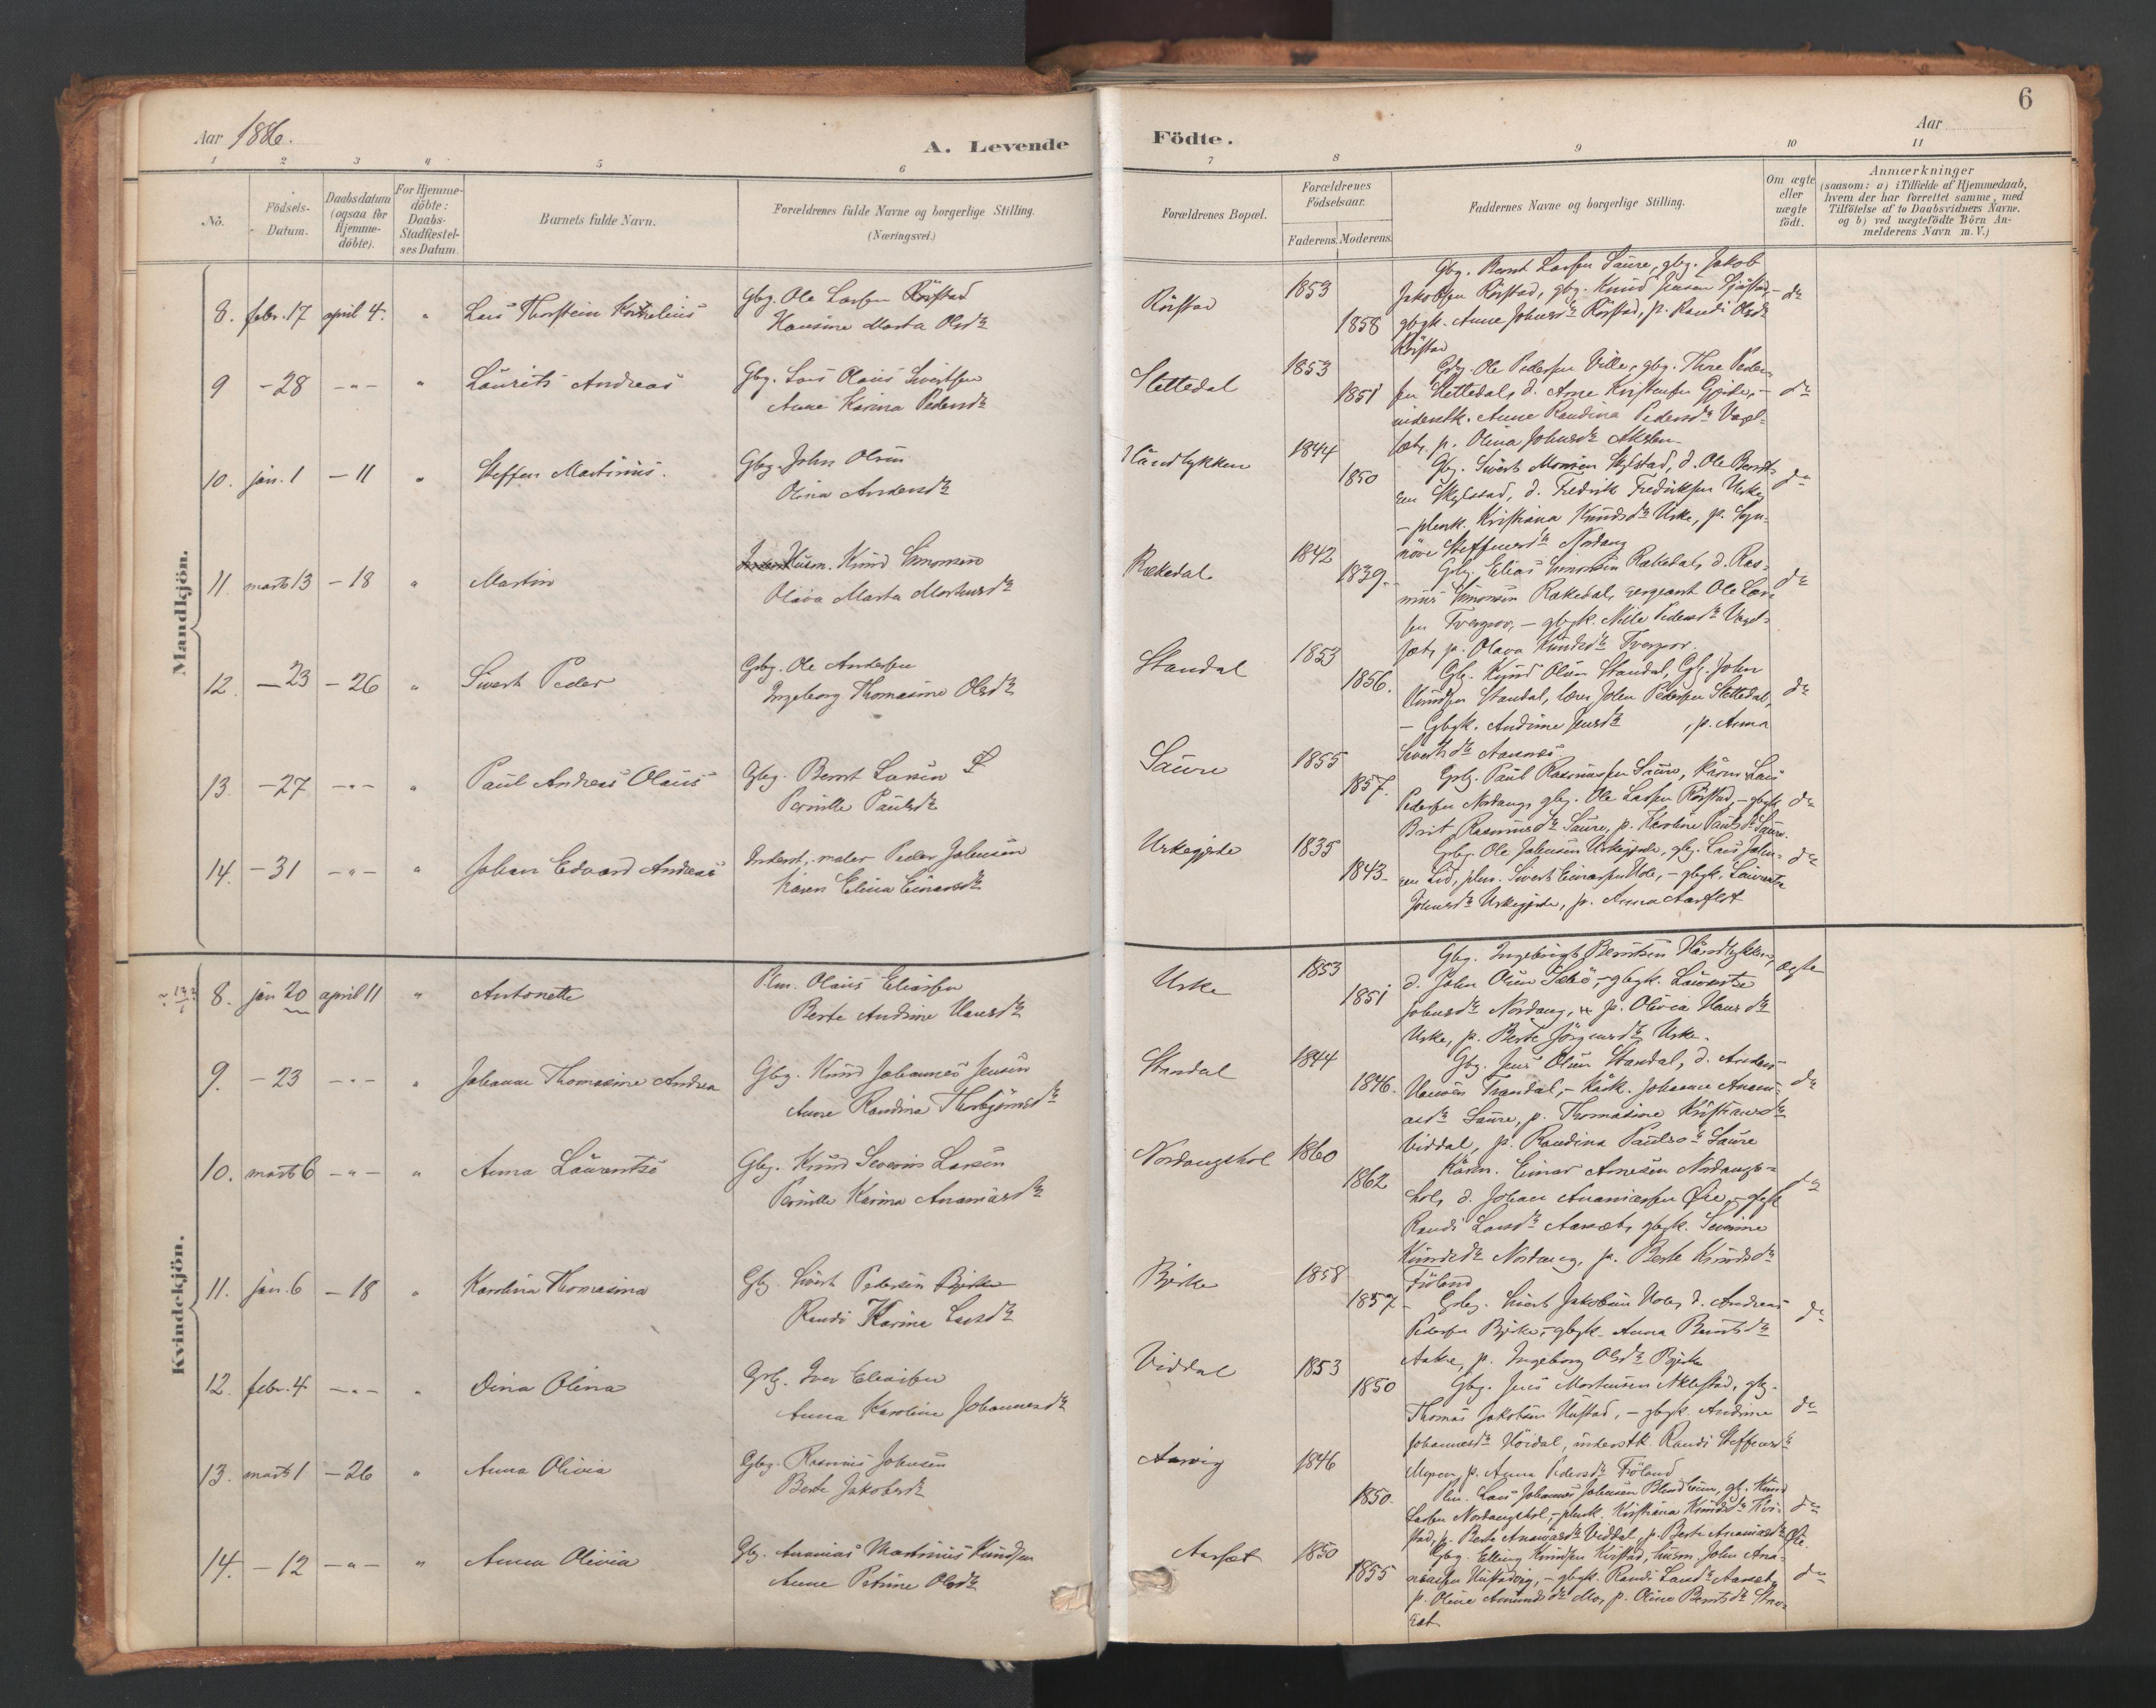 Aar 1886.
A. Levende
Födte.
Aar
6
1 2 3 4 5 6 7 8 9 10 11
No.
Födsels-
Datum.
Daabsdatum
(ogsaa for
Hjemme-
döbte).
For Hjemme-
döbte:
Daabs-
Stadfæstel-
ses Datum.
Barnets fulde Navn.
Forældrenes fulde Navne og borgerlige Stilling.
(Næringsvei.)
Forældrenes Bopæl.
Forældrenes
Födselsaar.
Faderens. Moderens.
Faddernes Navne og borgerlige Stilling.
Om ægte
eller
uægte
födt.
Anmærkninger
(saasom: a) i Tilfælde af Hjemmedaab,
hvem der har forrettet samme, med
Tilföielse af to Daabsvidners Navne.
og b) ved uægtefödte Börn An-
melderens Navn m. V.)
Mandkjön.
8. febr. 17 april 4. " Lars Thorstein Kornelius
Gbg. Ole Larsen Rörstad
Hansine Marta Olsdr
Rörstad 1853
1858
Gbg. Bernt Larsen Saure, gbg. Jakob
Jakobsen Rörstad, gbg. Knud Jensen
gbgk. Anne Johnsdr Rörstad, p. Randi Olsdr
Rörstad
do
9 - 28 - " - " Laurits Andreas
Gbg. Lars Olaus Sivertsen
Anne Karina Pedersdr
Slettedal 1853
1851
Gbg. Ole Pedersen Ville, gbg. Thore Peder-
sen Slettedal, d. Arne Kristensen Gjerde, -
inderstk. Anne Randina Pedersdr
sæt, p. Olina Johnsdr
do
10. jan. 1 - 11 " Steffen Martinus.
Gbg. John Olsen
Olina Andersdr
Haudlykken 1844
1850
Gbg. Sivert Monsen Skylstad, d. Ole Bernt-
sen Skylstad, d. Fredrik Fredriksen Urke,
- plmk. Kristiana Knudsdr Urke, p. Syn-
növe Steffensdr Nordang
do
11. marts 13 - 18 " Martin
Husm. Knud Simonsen
Olava Marta Mortensdr
Rekkedal 1842
1839.
Gbg. Elias Simonsen Rekkedal, d. Ras-
mus Simonsen Rekkedal, sergeant Ole Lar-
sen - gbgk. Nille Pedersdr
sæt, p. Olava Knudsdr
do
12. - 23 - 26 " Sivert Peder
Gbg. Ole Andersen
Ingeborg Thomasine Olsdr
Standal 1853
1856.
Gbg. Knud Olsen Standal, Gbg. John
Knudsen Standal, lærer John Pedersen Slettedal,
- Gbgk. Andrine Jensdr , p. Anna
Sivertsdr Aarsnes
do
13. - 27 - " - " Paul Andreas Olaus
Gbg. Bernt Larsen
Pernille Paulsdr
Saure 1855
1857.
Gbg. Paul Rasmussen Saure, Kårm. Lars
Pedersen Nordang, gbg. Ole Larsen Rörstad, - gbgk.
Brit Rasmusdr Saure, p. Karoline Paulsdr Saure.
do
14. - 31 - " - " Johan Edvard Andreas
Inderst, maler Peder Johnsen
Karen Elina Einarsdr
Urkegjerde 1835
1843
Gbg. Ole Johnsen Urkegjerde, gbg. Lars John-
sen Lid, plm. Sivert Einarsen Hole, - gbgk. Laurentse
Johnsdr Urkegjerde, p. Anna Aarflot
do
Kvindekjön.
8. jan 20 april 11 " Antonette
Plm. Olaus Eliassen
Berte Andrine Hansdr
Urke 1853
1851
Gbg. Ingebrigt Berntsen Haudlykken,
d. John Olsen Sæbö, - gbgk. Laurentse
Johnsdr Nordang, p. Olivia Hansdr
Urke, p. Berte Jörgensdr Urke.
ægte
9. - 23 - " - " Johanne Thomasine Andrea
Gbg. Knud Johannes Jensen
Anne Randina Thorbjörnsdr
Standal 1844
1846.
Gbg. Jens Olsen Standal, d. Anders
Hansen Trandal, - Kårk. Johanne Anani-
asdr Saure, p. Thomasine Kristiansdr
Viddal, p. Randina Paulsdr Saure
do
10. marts 6 - " - " Anna Laurentse
Gbg. Knud Severin Larsen
Pernille Karina Ananiasdr
Nordangshol 1860
1862
Kårm. Einar Arnesen Nordangs-
hol, d. Johan Ananiassen Öie, - gbgk
Randi Larsdr Aarsæt, gbgk. Severine
Knudsdr Nordang, p. Berte Knudsdr
Fiöland
do
11. jan. 6 - 18 " Karolina Thomasina
Gbg. Sivert Pedersen Bjerke
Randi Karine Larsdr
Bjerke 1858
1857
Gbg. Sivert Jakobsen Hole, d. Andreas
Pedersen Bjerke, - gbgk. Anna Berntsdr
Aakre, p. Ingeborg Olsdr Bjerke
do
12. febr. 4 - " - " Dina Olina
Gbg. Iver Eliassen
Anna Karoline Johannesdr
Viddal 1853
1850
Gbg. Jens Mortensen Aklestad, gbg.
Thomas Jakobsen Hustad, - gbgk. Andrine
Johannesdr Höidal, inderstk. Randi Steffensdr
p. Anna Pedersdr Fiöland
do
13. marts 1 - 26 " Anna Olivia
Gbg. Rasmus Johnsen
Berte Jakobsdr
Aarvig 1846
1850.
Plm. Lars Johannes Johnsen Blindheim, gb. Knud
Larsen Nordangshol, - plmk. Kristiana Knudsdr Kvi-
stad, p. Berte Ananiasdr Viddal, p. Berte Ananiasdr Öie.
do
14. - 12 - " - " Anna Olivia
Gbg. Ananias Martinus Knudsen
Anne Petrine Olsdr
Aarsæt 1850
1855
Gbg. Elling Knudsen Kvistad, husm. John Ana-
niassen Hustadvig, - gbgk. Randi Larsdr Aarsæt,
p. Oline Amundsdr Mo, p. Oline Berntsdr
sæt
do